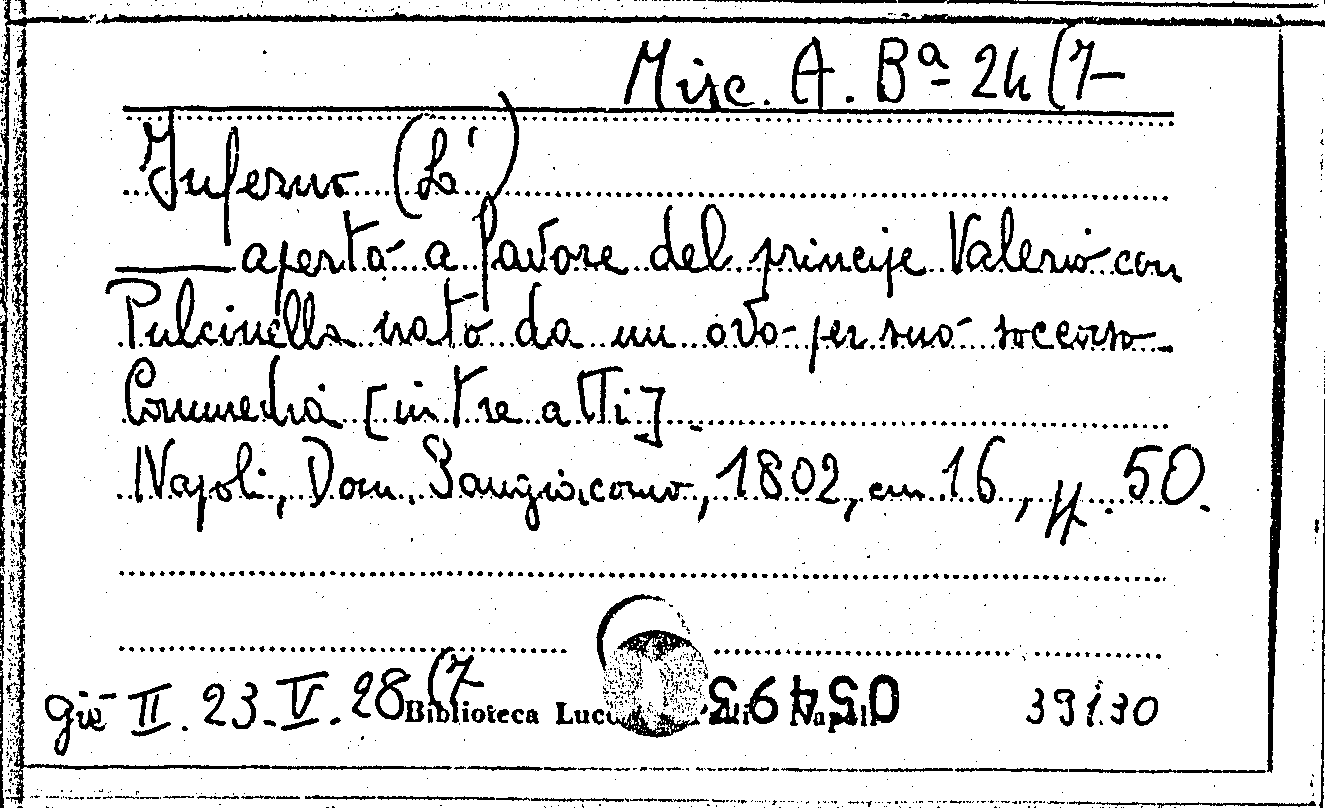 Misc. A. Bª 24 (7
Inferno (L')
____ aperto a favore del principe Valerio con
Pulcinella nato da un ovo per suo soccorso
Commedia [in tre atti].
Napoli, Dom. Sangiacomo, 1802, in 16, pp. 50.
già II. 23. V. 28 (7 Biblioteca Lucc Napoli 05493 39130